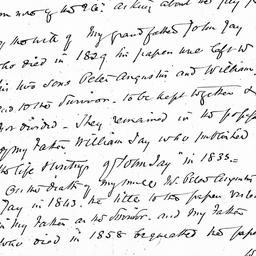 asking about the
By the will of My grandfather John Jay
who died in 1829 his papers were left to
his two sons Peter Augustus and William
and to the Survivor. to be kept together &
not divided. They remained in the
of my Father, William Jay who published
the life & writings of John Jay" in 1835.
On the death of my uncle Peter Augustus
Jay in 1843. the title to the papers
in my Father as the Survivor. and My Father
who died in 1858 bequeathed the papers